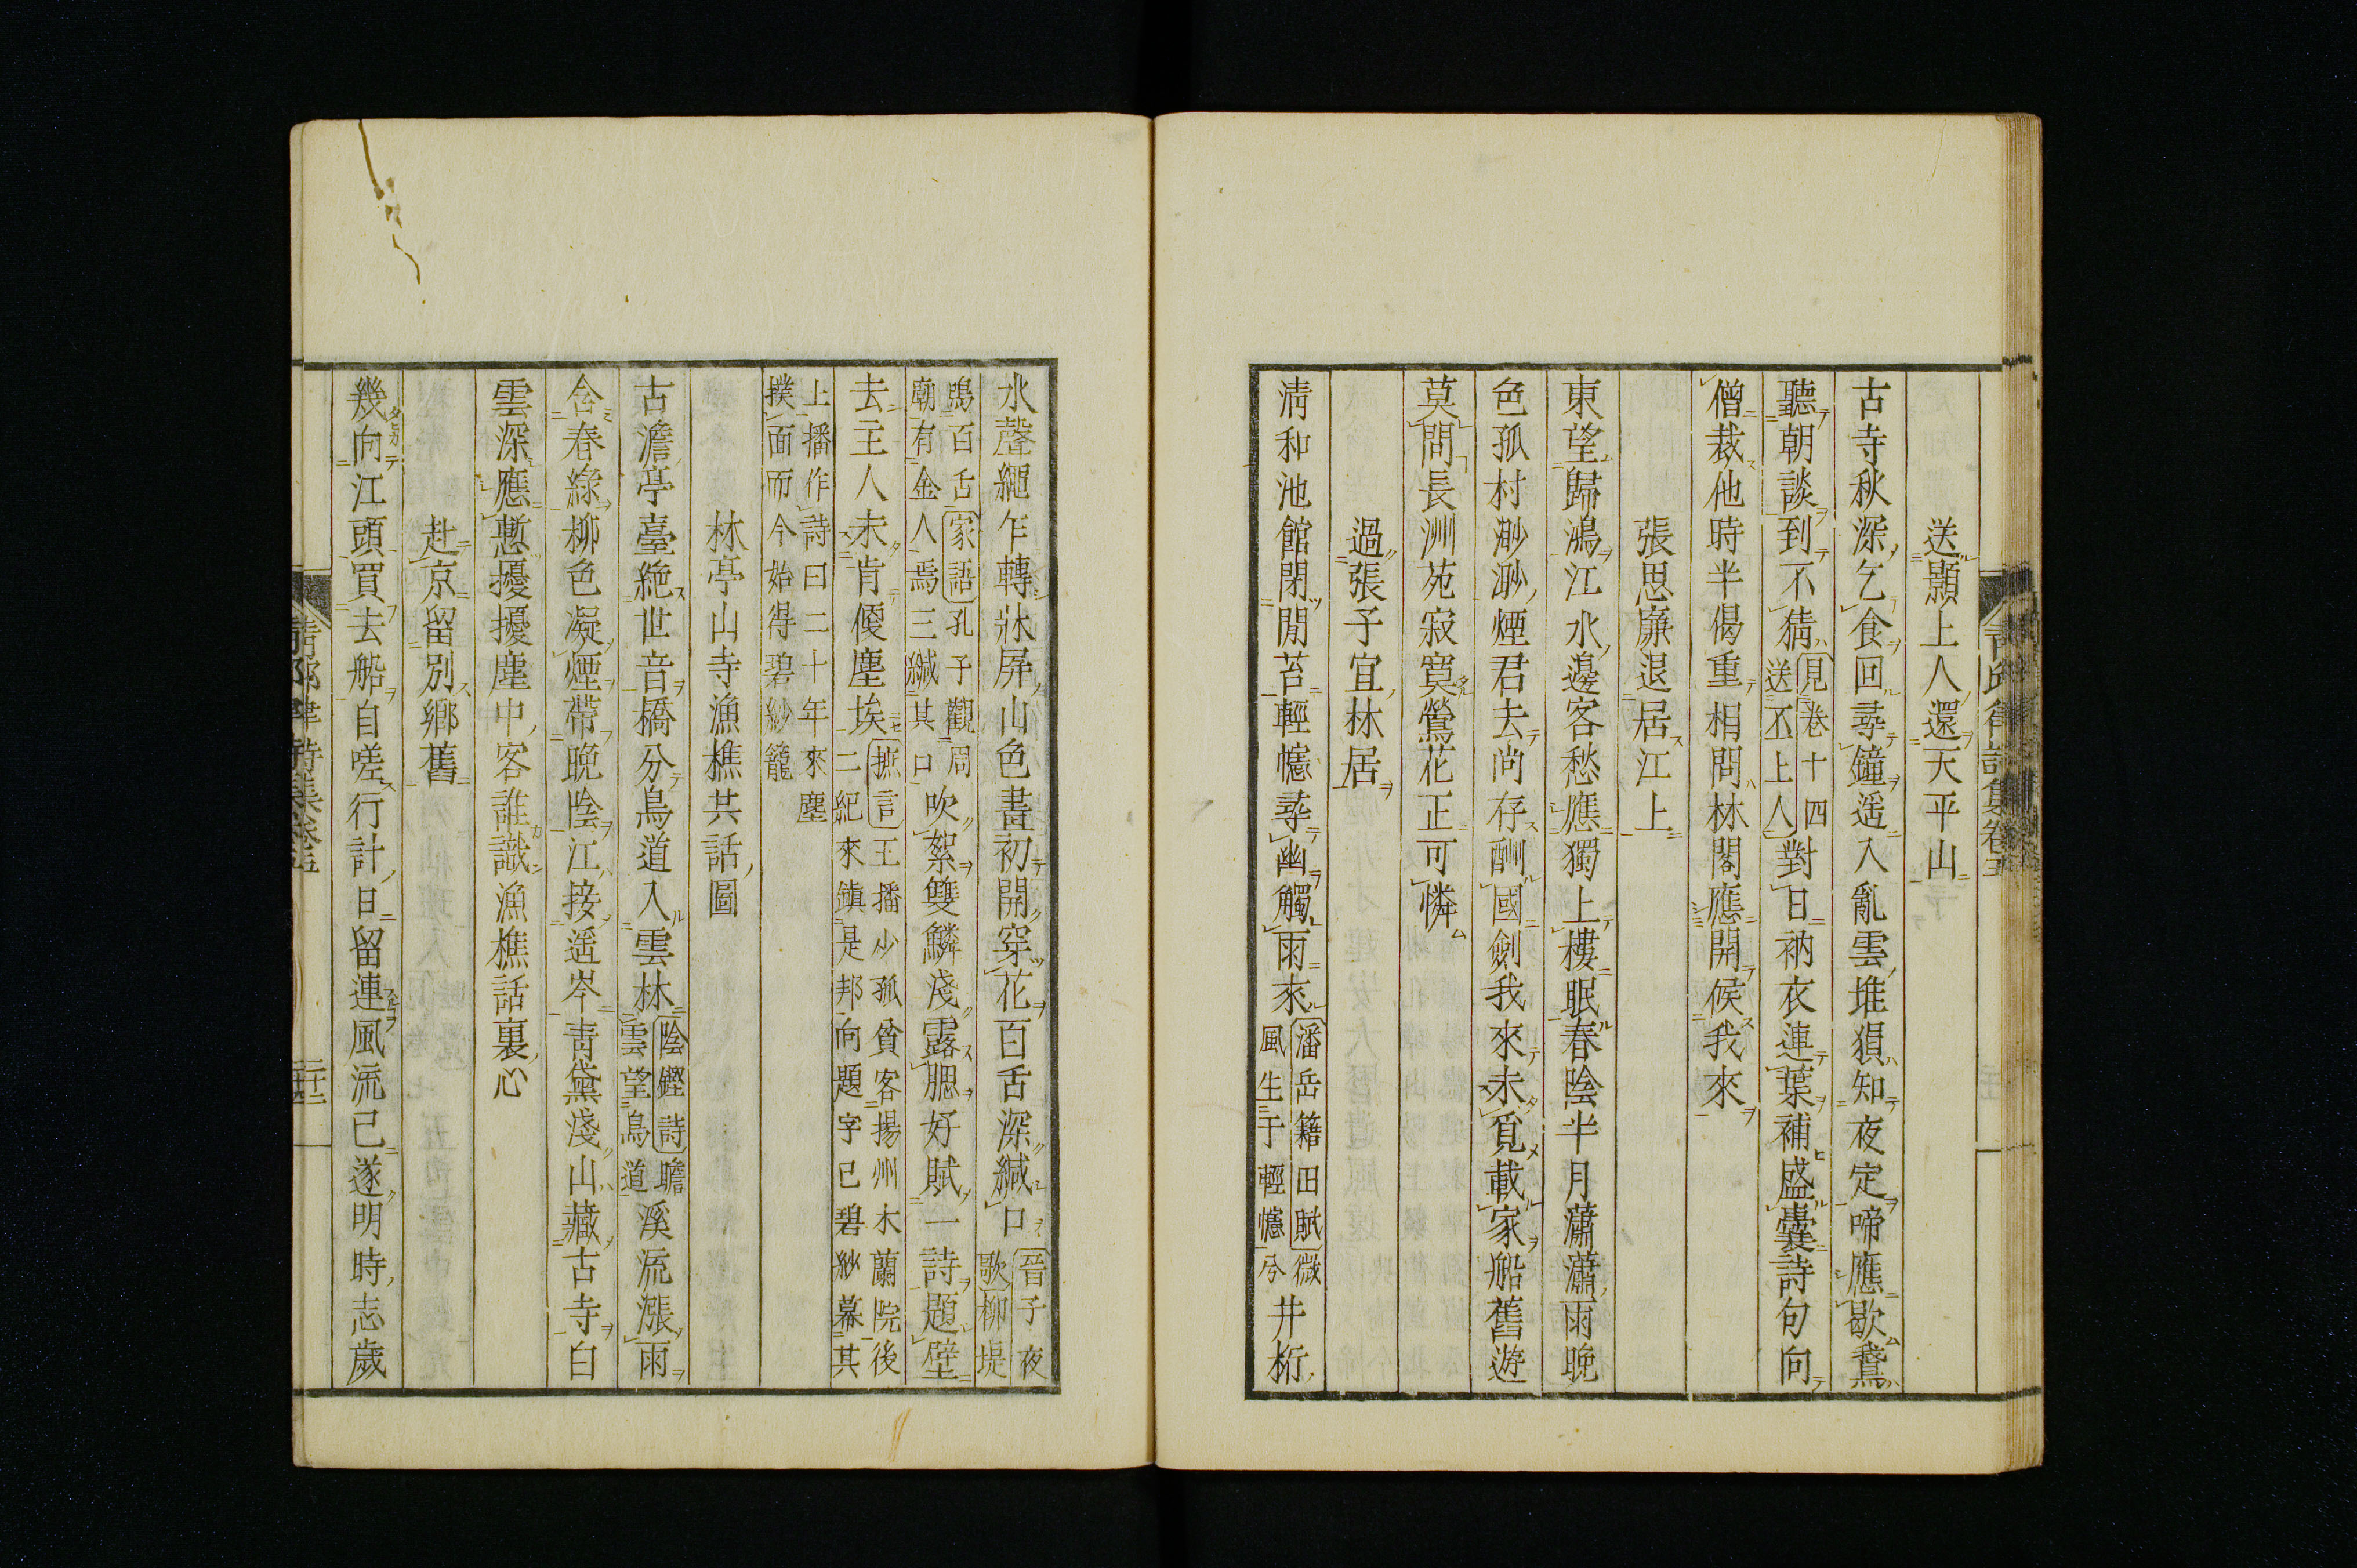 送顥上人還天平山
古寺秋深乞食回尋鐘遥入亂雲堆猿知夜定啼應歇鵞
聽朝談到不猜見卷十四送丕上人對日衲衣連葉補盛囊詩句向
僧裁他時半偈重相問林閣應開候我來
張思廉退居江上
東望歸鴻江水邊客愁應獨上樓眠春陰半月瀟瀟雨晚
色孤村渺渺煙君去尚存酬國劍我來未覓載家船舊遊
莫問長洲苑寂寞鶯花正可憐
過張子宜林居
淸和池館閉閒苔輕幰尋幽觸雨來潘岳籍田賦微風生于輕幰兮井桁
水聲繩乍轉牀屏山色畫初開穿花百舌深緘口晉子夜歌柳堤
鳴百舌家語孔子觀周廟有金人焉三緘其口吹絮雙鱗淺露腮好賦一詩題壁
去主人未肯傻塵埃摭言王播少孤貧客揚州木蘭院後二紀來鎮是邦向題字已碧紗幕其
上播作詩曰二十年來塵撲面而今始得碧紗籠
林亭山寺漁樵共話圖
古澹亭臺絶世音橋分鳥道入雲林陰鏗詩瞻雲望鳥道溪流漲雨
含春綠柳色凝煙帶晩陰江接遥岑靑黛淺山藏古寺白
雲深應慙擾擾塵中客誰識漁樵話裏心
赴京留別鄉舊
幾向江頭買去船自嗟行計日留連風流已遂明時志歲
靑邱律詩集卷五
二十二